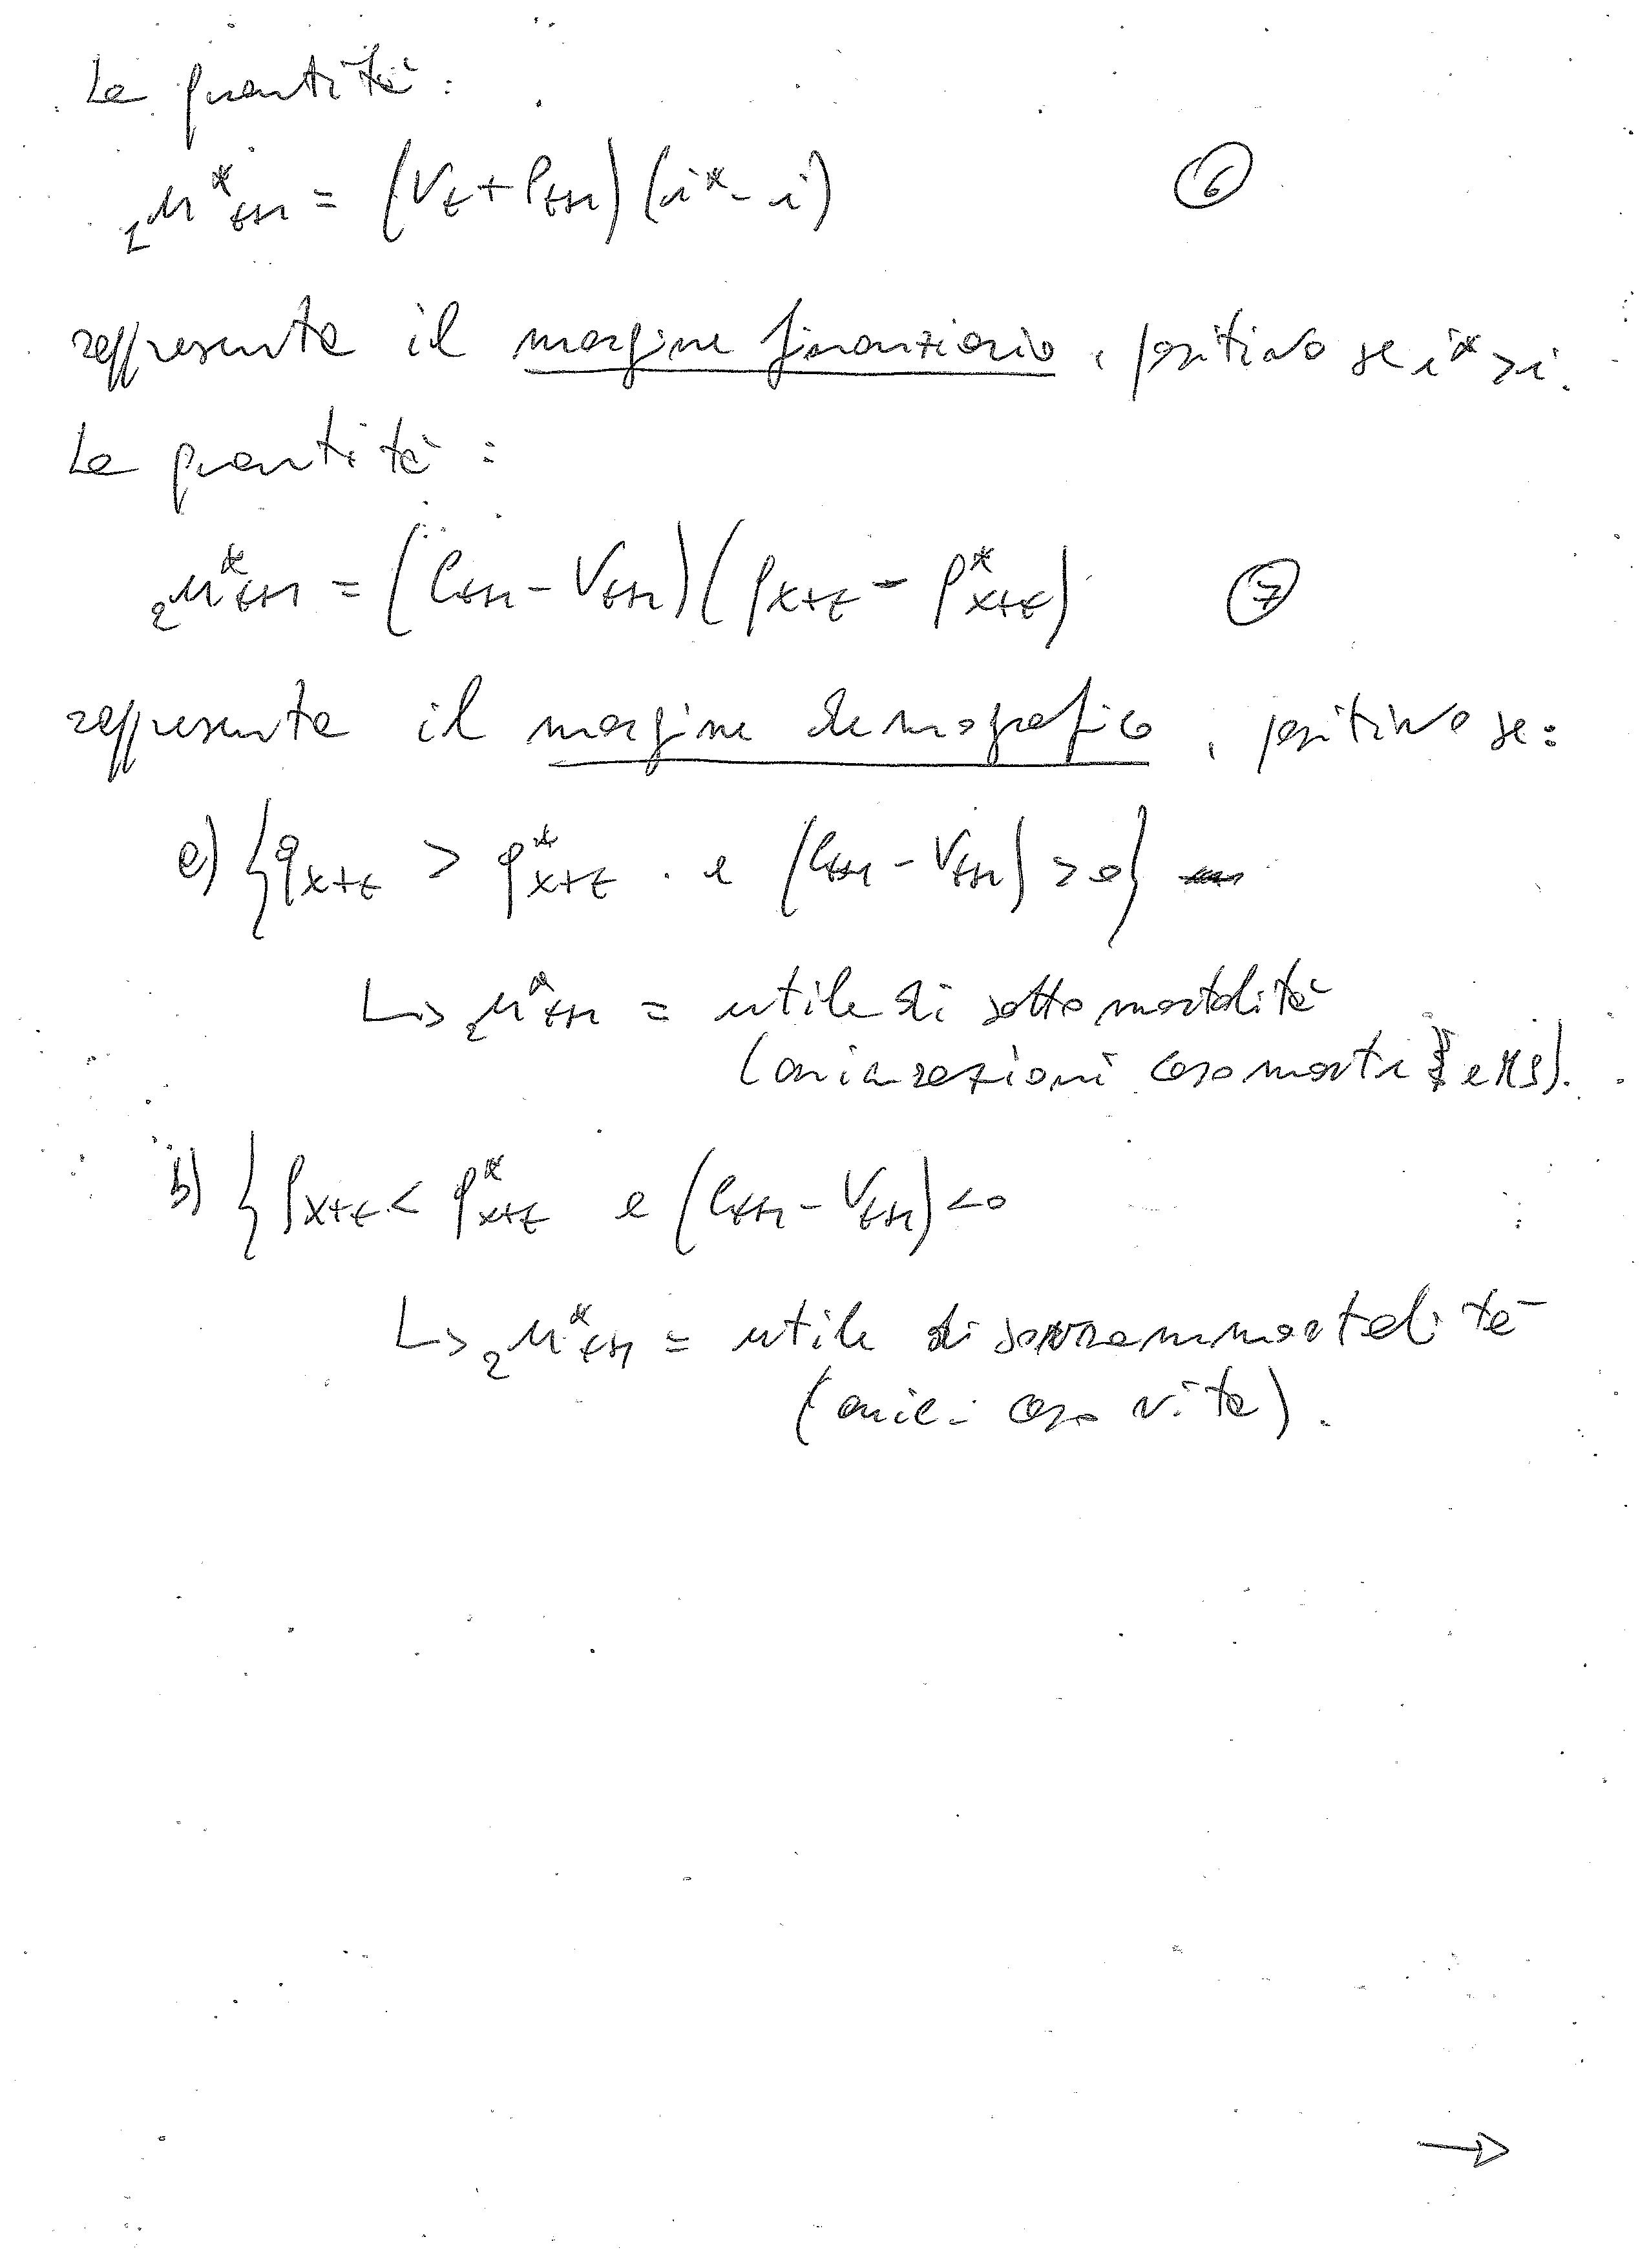 La quantità:
₁u*ₜ₊₁ = (Vₜ + Pₜ₊₁)(i* - i) ⑥
rappresenta il margine finanziario, positivo se i* > i.
La quantità:
₂u*ₜ₊₁ = (Cₜ₊₁ - Vₜ₊₁)(qₓ₊ₜ - q*ₓ₊ₜ) ⑦
rappresenta il margine demografico, positivo se:
a) {qₓ₊ₜ > q*ₓ₊ₜ e (Cₜ₊₁ - Vₜ₊₁) > 0}
↳ ₂u*ₜ₊₁ = utile di sottomortalità
(assicurazioni caso morte e MS).
b) {qₓ₊ₜ < q*ₓ₊ₜ e (Cₜ₊₁ - Vₜ₊₁) < 0
↳ ₂u*ₜ₊₁ = utile di sovrammortalità
(assic. caso vita).
→